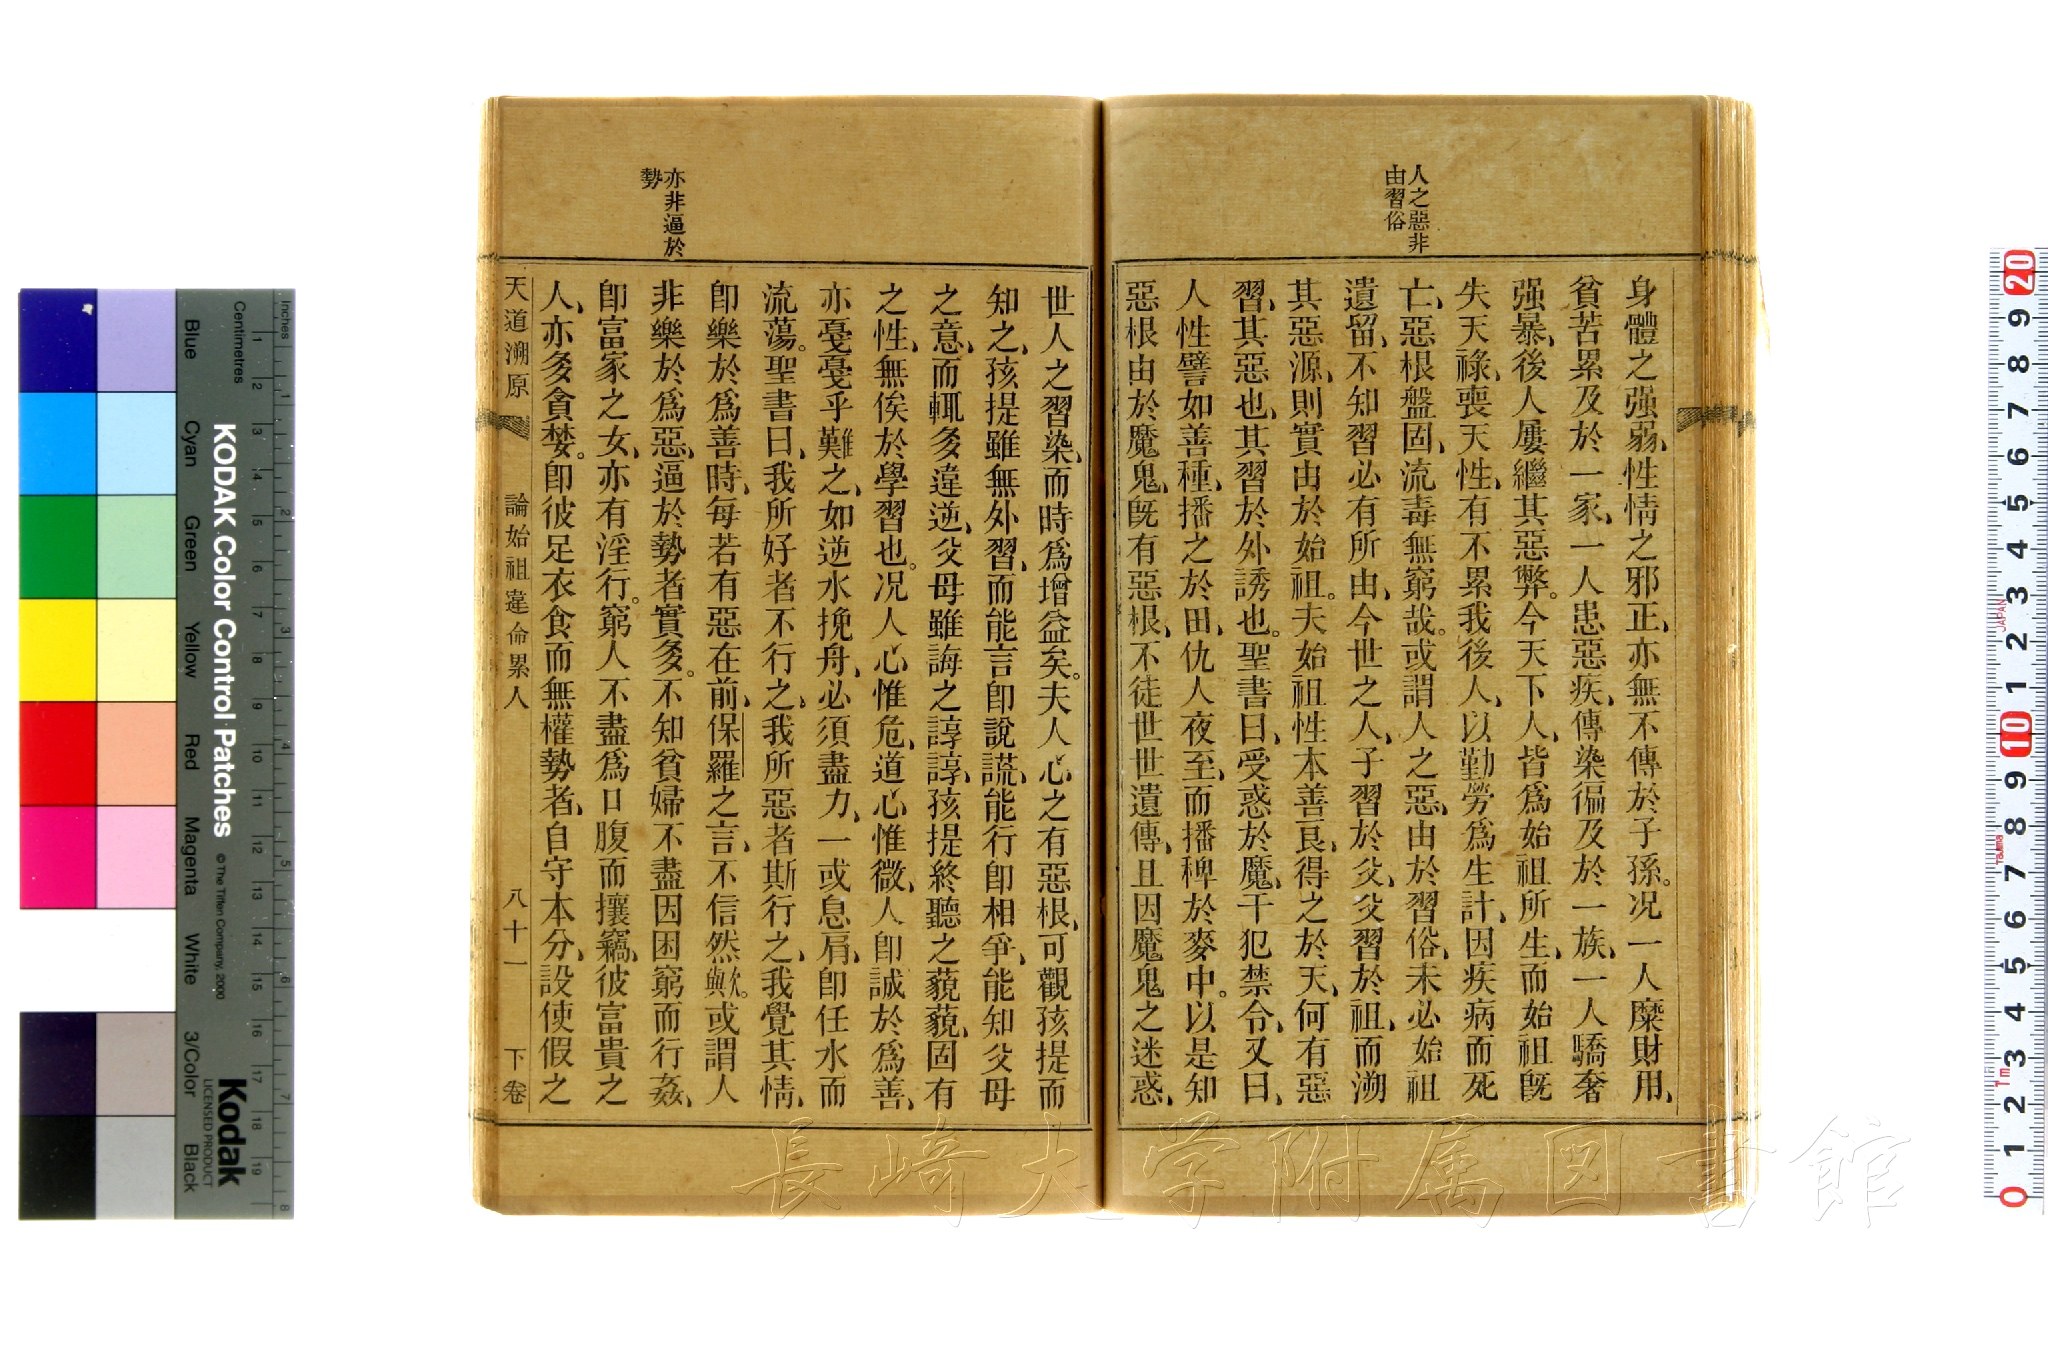 人之惡非
由習俗
身體之强弱、性情之邪正、亦無不傳於子孫。况一人糜財用、
貧苦累及於一家、一人患惡疾、傳染徧及於一族、一人驕奢
强暴、後人屢繼其惡弊。今天下人、皆爲始祖所生、而始祖旣
失天祿、喪天性、有不累我後人、以勤勞爲生計、因疾病而死
亡、惡根盤固、流毒無窮哉。或謂人之惡、由於習俗、未必始祖
遺留、不知習必有所由、今世之人、子習於父、父習於祖、而溯
其惡源、則實由於始祖。夫始祖性本善良、得之於天、何有惡
習、其惡也、其習於外誘也。聖書曰、受惑於魔、干犯禁令、又曰、
人性譬如善種、播之於田、仇人夜至、而播稗於麥中。以是知
惡根由於魔鬼、旣有惡根、不徒世世遺傳、且因魔鬼之迷惑、
亦非逼於
勢
世人之習染、而時爲增益矣。夫人心之有惡根、可觀孩提而
知之、孩提雖無外習、而能言卽說謊、能行卽相爭、能知父母
之意、而輒多違逆、父母雖誨之諄諄、孩提終聽之藐藐、固有
之性、無俟於學習也。况人心惟危、道心惟微、人卽誠於爲善、
亦戞戞乎難之、如逆水挽舟、必須盡力、一或息肩、卽任水而
流蕩。聖書曰、我所好者不行之、我所惡者斯行之、我覺其情、
卽樂於爲善時、每若有惡在前、保羅之言、不信然歟。或謂人
非樂於爲惡、逼於勢者實多。不知貧婦不盡因困窮而行姦、
卽富家之女、亦有淫行。窮人不盡爲口腹而攘竊、彼富貴之
人、亦多貪婪。卽彼足衣食而無權勢者、自守本分、設使假之
天道溯原 論始祖違命累人 八十一 下卷
KODAK Color Control Patches
© The Tiffen Company, 2000
Kodak
LICENSED PRODUCT
Inches
Centimetres
Blue Cyan Green Yellow Red Magenta White 3/Color Black
長崎大学附属図書館
JAPAN